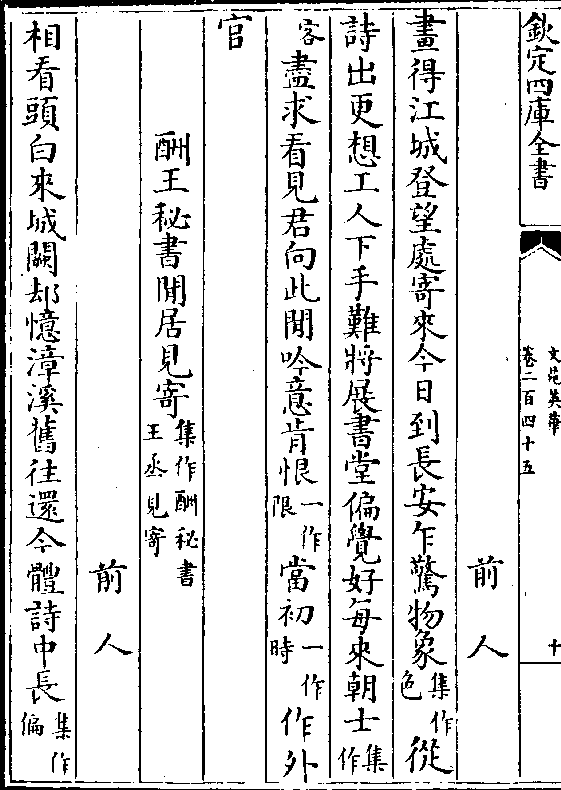 欽定四庫全書
文苑英華
卷二百四十五
十
前人
畫得江城登望處寄來今日到長安乍驚物象集作色從
詩出更想工人下手難將展書堂偏覺好每來朝士集作
客盡求看見君向此閒吟意肯恨一作限當初一作時作外
官
酬王秘書閒居見寄集作酬秘書王丞見寄
前人
相看頭白來城闕却憶漳溪舊往還今體詩中長集作偏